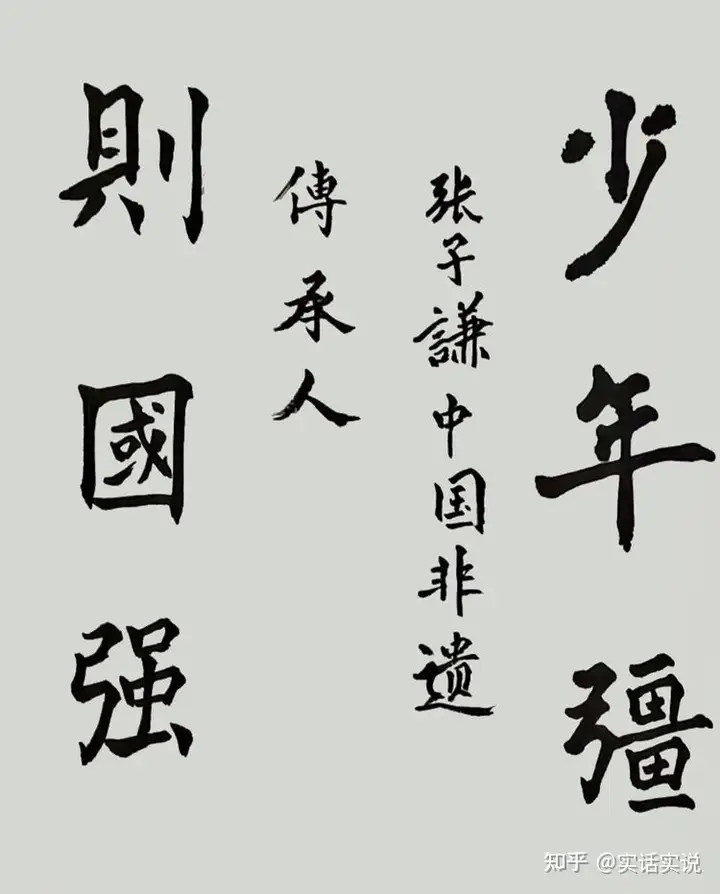 少年彊
張子謙中国非遗
傳承人
則國强
知乎 @实话实说